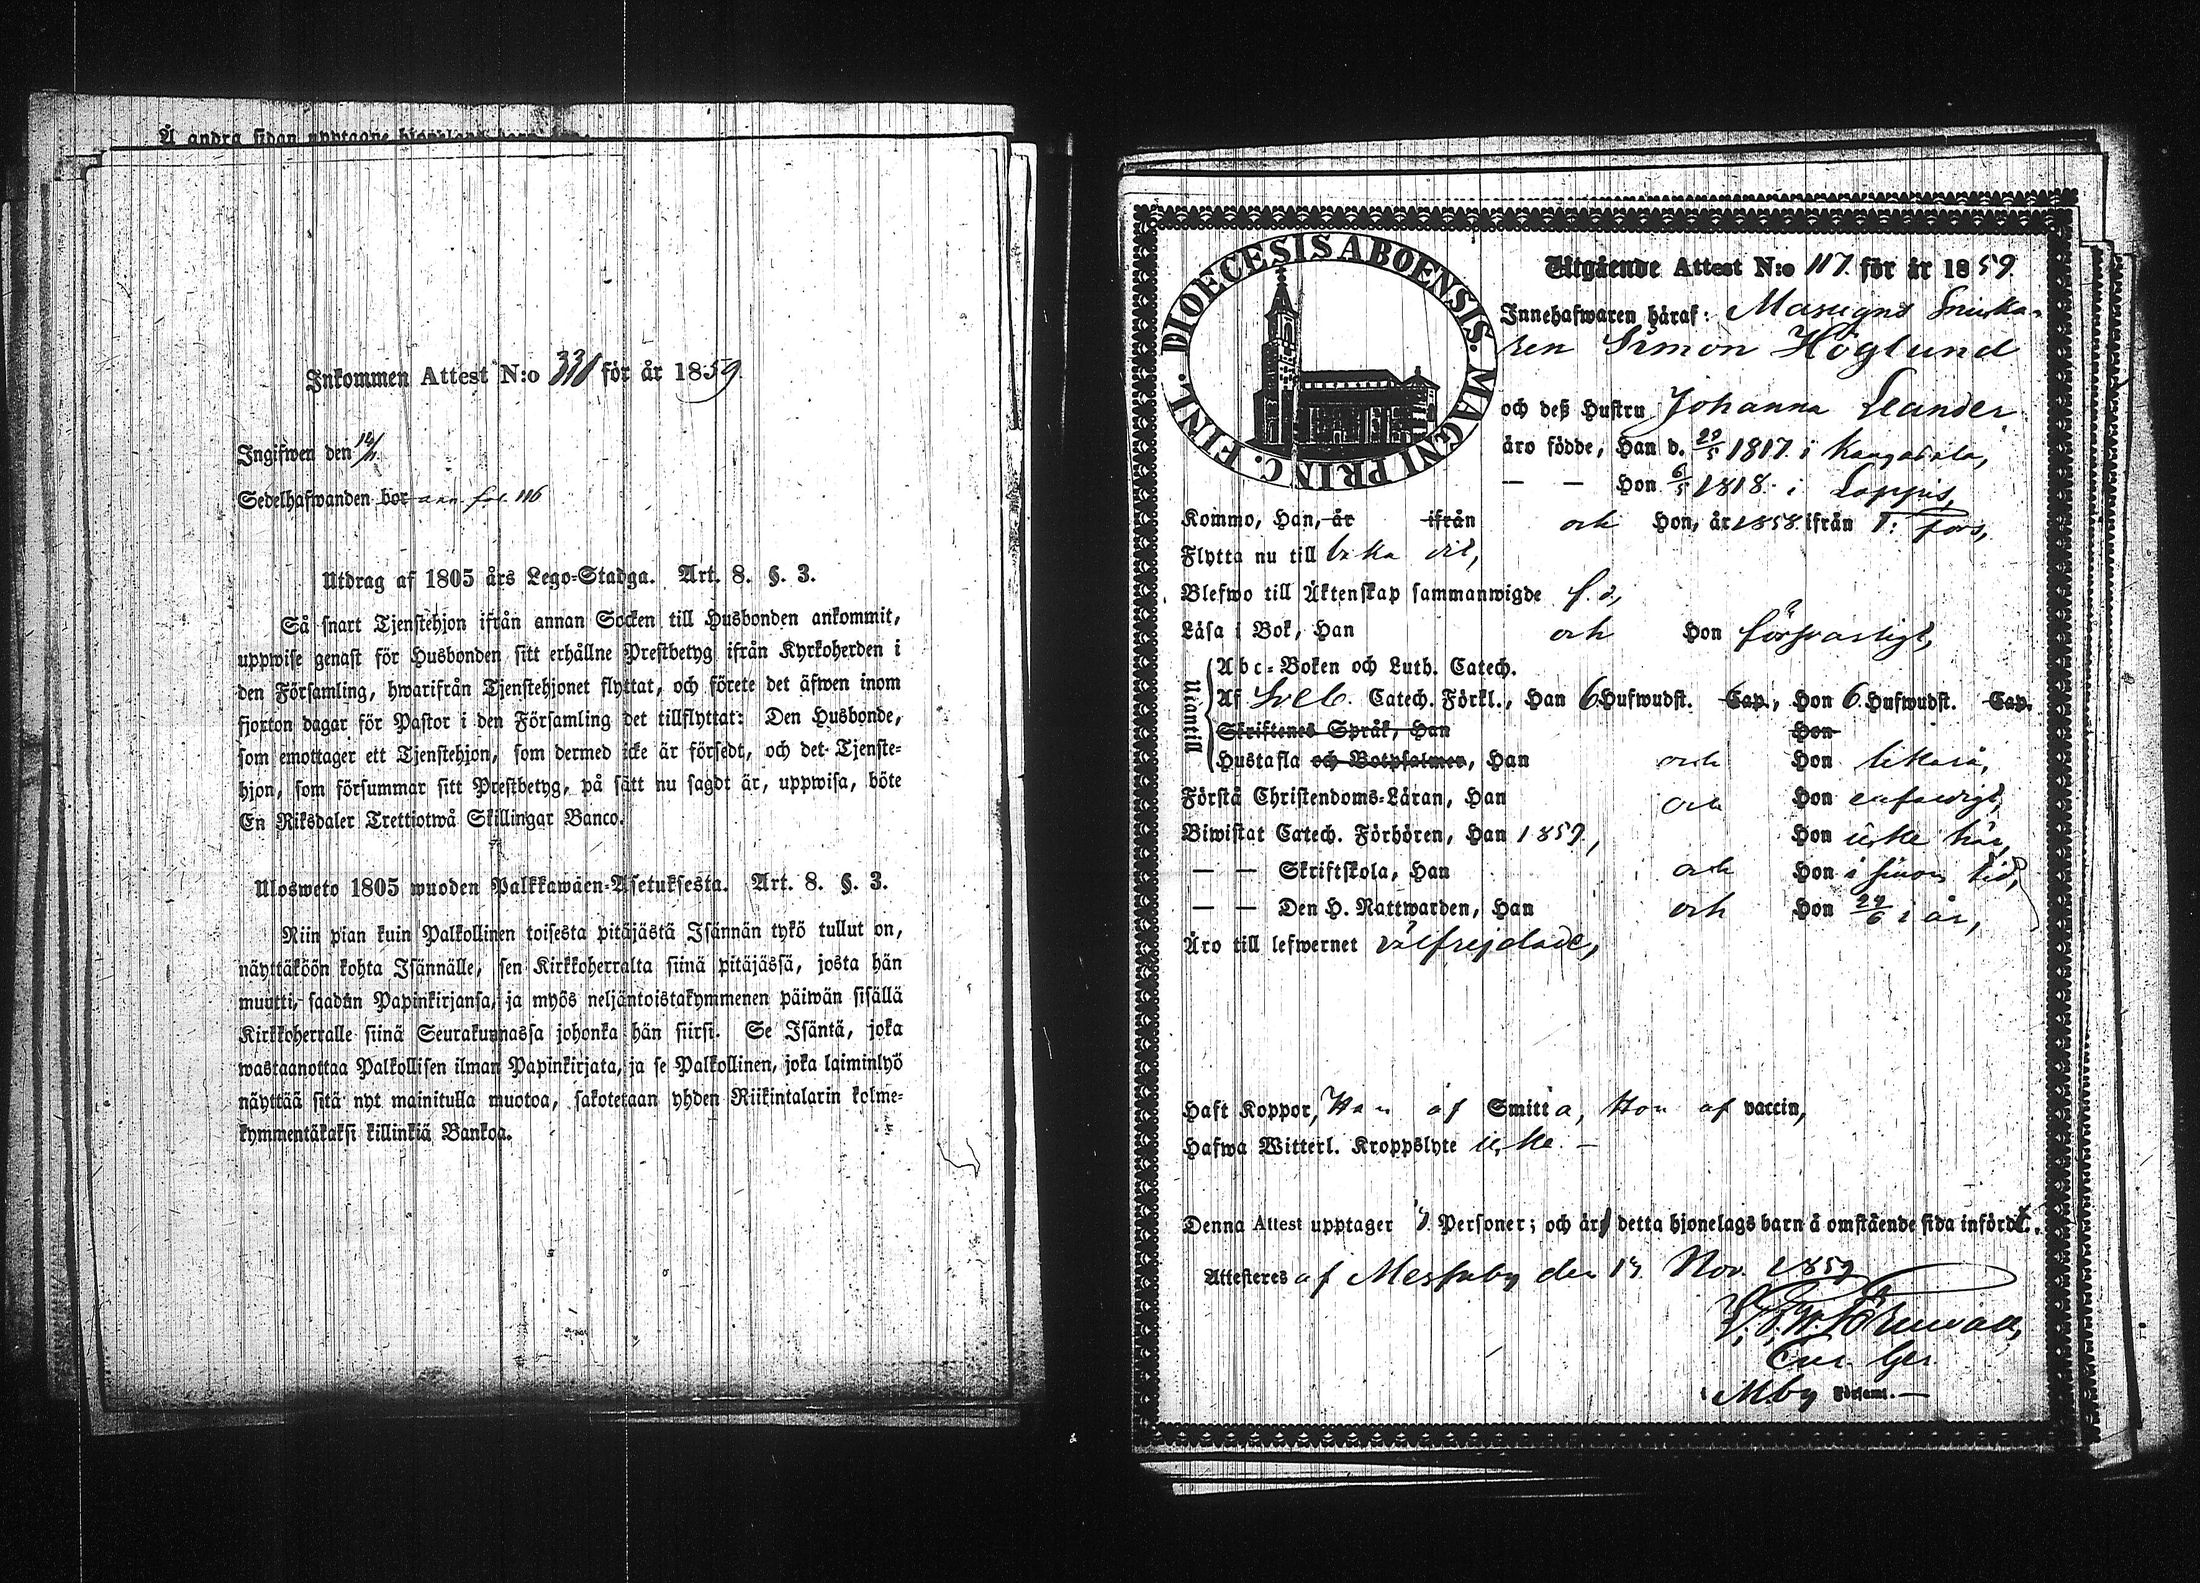 Å andra sidan upptagne
Inkommen Attest N:o 331 för år 1859.
Ingifwen den
Sedelhafwanden bor fol. 116
Utdrag af 1805 års Lego-Stadga. Art. 8. §. 3.
Så snart Tjenstehjon ifrån annan Socken till Husbonden ankommit,
uppwise genast för Husbonden sitt erhållne Prestbetyg ifrån Kyrkoherden i
den Församling, hwarifrån Tjenstehjonet flyttat, och förete det äfwen inom
fjorton dagar för Pastor i den Församling det tillflyttat: Den Husbonde,
som emottager ett Tjenstehjon, som dermed icke är försedt, och det Tjenste-
hjon, som försummar sitt Prestbetyg, på sätt nu sagdt är, uppwisa, böte
En Riksdaler Trettiotwå Skillingar Banco.
Ulosweto 1805 wuoden Palkkawäen-Asetuksesta. Art. 8. §. 3.
Niin pian kuin Palkollinen toisesta pitäjästä Isännän tykö tullut on,
näyttäköön kohta Isännälle, sen Kirkkoherralta siinä pitäjässä, josta hän
muutti, saadun Papinkirjansa, ja myös neljäntoistakymmenen päiwän sisällä
Kirkkoherralle siinä Seurakunnassa johonka hän siirsi. Se Isäntä, joka
wastaanottaa Palkollisen ilman Papinkirjata, ja se Palkollinen, joka laiminlyö
näyttää sitä nyt mainitulla muotoa, sakotetaan yhden Riikintalarin kolme-
kymmentäkaksi killinkiä Bankoa.
DIOECESIS ABOENSIS. MAGNI PRINC. FINL.
Utgående Attest N:o 117 för år 1859.
Innehafwaren häraf: Masugns Snicka-
ren Simon Höglund
och deß Hustru Johanna Leander
äro födde, Han d. 29/5 1817 i Kangasala,
— — Hon 6/5 1818 i Loppis,
Kommo, Han, år ifrån och Hon, år 1858 ifrån T: fors,
Flytta nu till
Blefwo till Äktenskap sammanwigde
Läsa i Bok, Han och Hon försvarligt,
Utantill
Abc-Boken och Luth. Catech.
Af Sveb. Catech. Förkl., Han 6 Hufwudst. Cap., Hon 6 Hufwudst. Cap.
Skriftenes Språk, Han Hon
Hustafla och Botpsalmer, Han och Hon likaså,
Förstå Christendoms-Läran, Han och Hon enfaldigt,
Biwistat Catech. Förhören, Han 1859, Hon icke här,
— — Skriftskola, Han och Hon i sinom tid,
— — Den H. Nattwarden, Han och Hon i år,
Äro till lefwernet välfrejdade,
Haft Koppor, Han af Smitta, Hon af vaccin,
Hafwa Witterl. Kroppslyte icke. —
Denna Attest upptager Personer; och är detta hjonelags barn å omstående sida infördt.
Attesteres af Messuby den 17 Nov. 1859
M:by Församl. —